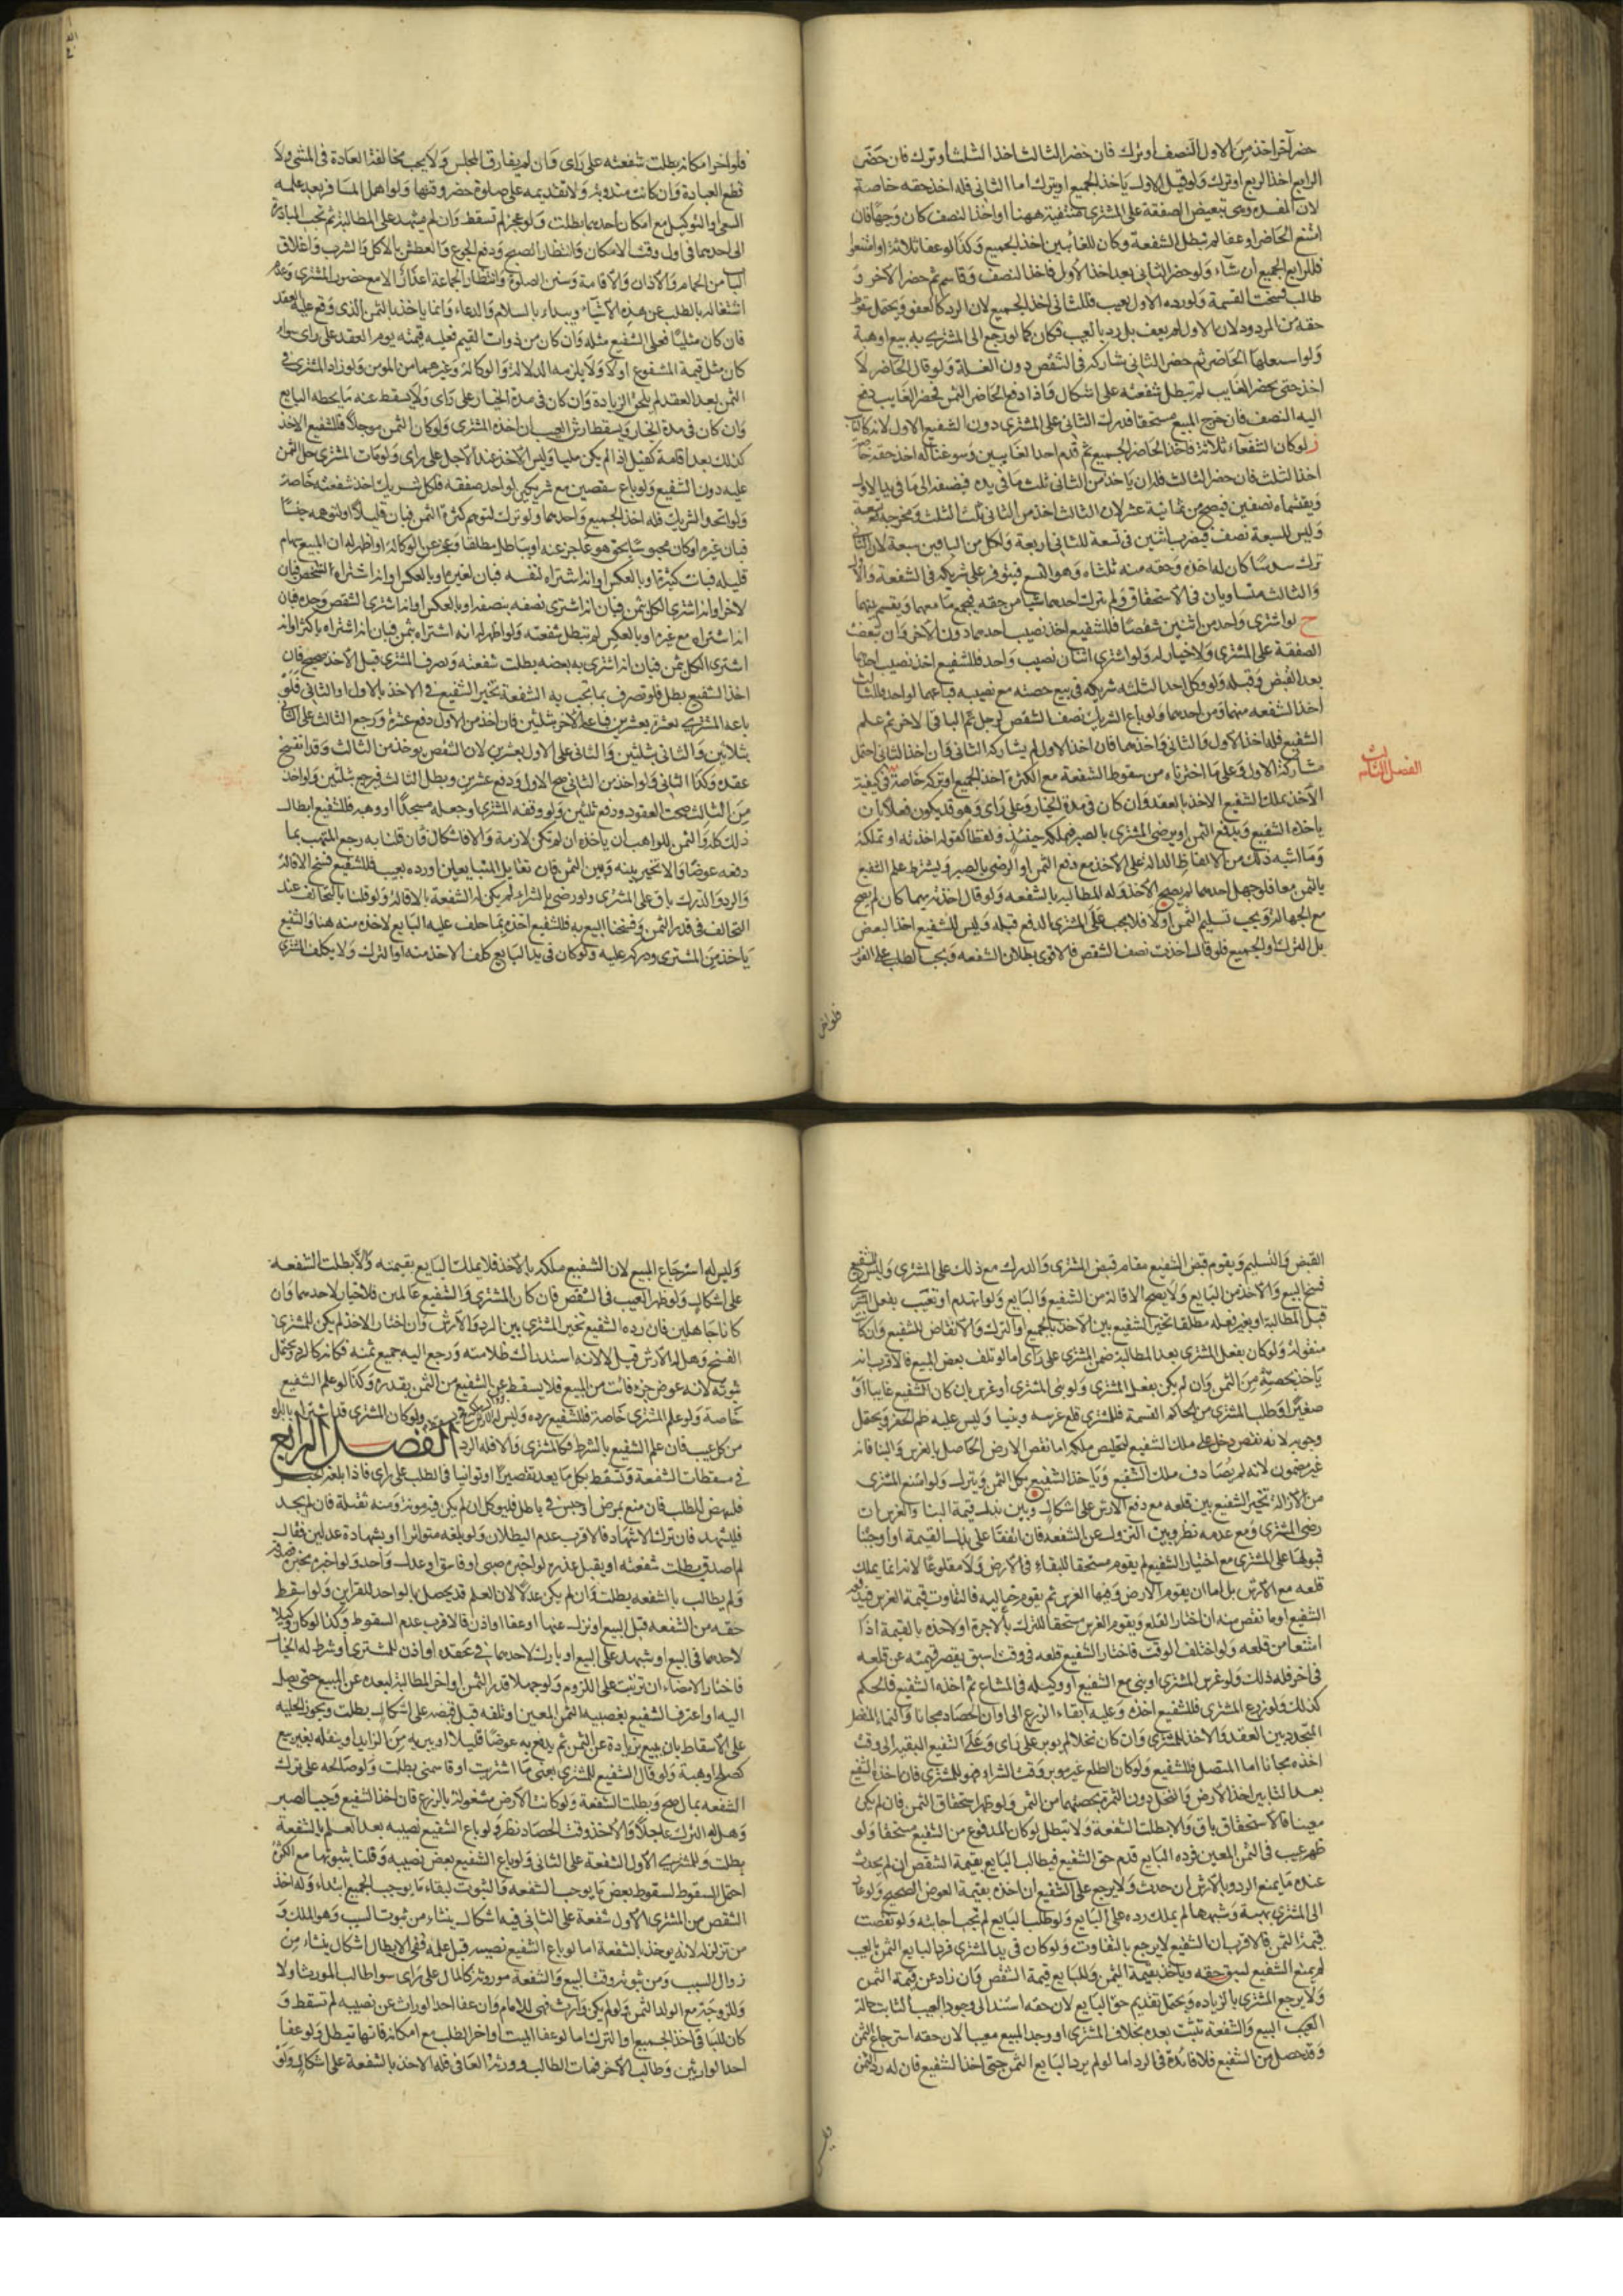 حضر آخر اخذ من الاول النصف او ترك فان حضر الثالث اخذ الثلث او ترك فان حضر
الرابع اخذ الربع او ترك ولو قيل الاول ياخذ الجميع او يترك اما الثاني فله اخذ حقه خاصة
لان المفسدة وهى تبعيض الصفقة على المشترى منتفية ههنا او اخذ النصف كان وجها فان
امتنع الحاضر او عفا لم تبطل الشفعة وكان للغائبين اخذ الجميع وكذا لو عفا ثلاثة او امتنعوا
فللرابع الجميع ان شاء ولو حضر الثاني بعد اخذ الاول فاخذ النصف وقاسم ثم حضر الآخر و
طالب فسخت القسمة ولو رده الاول بعيب فللثاني اخذ الجميع لان الرد كالعفو ويحتمل سقوط
حقه من المردود لان الاول لم يعف بل رد بالعيب فكان كما لو رجع الى المشترى ببيع او هبة
ولو استغلها الحاضر ثم حضر الثاني شاركه في الشقص دون الغلة ولو قال الحاضر لا
اخذ حتى يحضر الغايب لم تبطل شفعته على اشكال فاذا دفع الحاضر الثمن فحضر الغايب دفع
اليه النصف فان خرج المبيع مستحقا فدرك الثاني على المشترى دون الشفيع الاول لانه كالنايب
ز لو كان الشفعاء ثلاثة فاخذ الحاضر الجميع ثم قدم احد الغايبين وسوغنا له اخذ حقه خاصة
اخذ الثلث فان حضر الثالث فله ان ياخذ من الثاني ثلث ما في يده فيضيفه الى ما في يد الاول
ويقتسمانه نصفين فيصح من ثمانية عشر لان الثالث اخذ من الثاني ثلث الثلث ومخرجه تسعة
وليس للسبعة نصف فيضرب اثنين في تسعة للثاني اربعة ولكل من الباقين سبعة لان الثاني
ترك سدسا كان له اخذه وحقه منه ثلثاه وهو التسع فيتوفر على شريكه في الشفعة والاول
والثالث متساويان في الاستحقاق ولم يترك احدهما شيا من حقه فيجمع ما معهما ويقسم بينهما
ح لو اشترى واحد من اثنين شقصا فللشفيع اخذ نصيب احدهما دون الآخر وان تبعضت
الصفقة على المشترى ولا خيار له ولو اشترى اثنان نصيب واحد فللشفيع اخذ نصيب احدهما
بعد القبض وقبله ولو وكل احد الثلثه شريكه في بيع حصته مع نصيبه فباعهما لواحد فللثالث
اخذ الشفعه منهما ومن احدهما ولو باع الشريك نصف الشقص لرجل ثم الباقي لآخر ثم علم
الشفيع فله اخذ الاول والثاني واحدهما فان اخذ الاول لم يشاركه الثاني وان اخذ الثاني احتمل
مشاركة الاول وعلى ما اخترناه من سقوط الشفعة مع الكثرة اخذ الجميع او تركه خاصة في كيفية
الفصل الثالث
الاخذ يملك الشفيع الاخذ بالعقد وان كان في مدة الخيار على راى وهو قد يكون فعلا بان
ياخذه الشفيع ويدفع الثمن او يرضى المشترى بالصبر فيملكه حينئذ ولفظا كقوله اخذته او تملكته
وما اشبه ذلك من الالفاظ الدالة على الاخذ مع دفع الثمن او الرضى بالصبر ويشترط علم الشفيع
بالثمن معا فلو جهل احدهما لم يصح الاخذ وله المطالبه بالشفعه ولو قال اخذته بمهما كان لم يصح
مع الجهالة ويجب تسليم الثمن اولا فلا يجب على المشترى الدفع قبله وليس للشفيع اخذ البعض
بل الترك او الجميع فلو قال اخذت نصف الشقص فالاقوى بطلان الشفعه ويجب الطلب على الفور
فلو اخر
فلو اخر امكانه بطلت شفعته على راى وان لم يفارق المجلس ولا يجب مخالفة العادة في المشى ولا
قطع العبادة وان كانت مندوبة ولا تقديمه على صلوة حضر وقتها ولو اهمل المسافر بعد علمه
السعى او التوكيل مع امكان احدهما بطلت ولو عجز لم تسقط وان لم يشهد على المطالبة ثم تجب المبادرة
الى احدهما في اول وقت الامكان وانتظار الصبح ودفع الجوع والعطش بالاكل والشرب واغلاق
الباب من الحمام والاذان والاقامة وسنن الصلوة وانتظار الجماعة اعذار الا مع حضور المشترى وعدم
اشتغاله بالطلب عن هذه الاشياء ويبداء بالسلام والدعاء وانما ياخذ بالثمن الذي وقع عليه العقد
فان كان مثليا فعلى الشفيع مثله وان كان من ذوات القيم فعليه قيمته يوم العقد على راى سواء
كان مثل قيمة المشفوع اولا ولا يلزمه الدلالة والوكالة وغيرهما من المؤن ولو زاد المشترى في
الثمن بعد العقد لم يلحق الزيادة وان كان في مدة الخيار على راى ولا يسقط عنه ما يحطه البايع
وان كان في مدة الخيار ويسقط ارش العيب ان اخذه المشترى ولو كان الثمن موجلا فللشفيع الاخذ
كذلك بعد اقامة كفيل اذا لم يكن مليا وليس له الاخذ عند الاجل على راى ولو مات المشترى حل الثمن
عليه دون الشفيع ولو باع شقصين مع شريكين لواحد صفقه فلكل شريك اخذ شفعته خاصة
ولو اتحد الشريك فله اخذ الجميع واحدهما ولو ترك لتوهم كثرة الثمن فبان قليلا او لتوهمه جنسا
فبان غيره او كان محبوسا بحق هو عاجز عنه او بباطل مطلقا وعجز عن الوكالة او اظهر له ان المبيع سهام
قليله فبانت كثيرة او بالعكس او انه اشتراه لنفسه فبان لغيره او بالعكس او انه اشتراه لشخص فبان
لاخر او انه اشترى الكل بثمن فبان انه اشترى نصفه بنصفه او بالعكس او انه اشترى الشقص وحده فبان
انه اشتراه مع غيره او بالعكس لم تبطل شفعته ولو اظهر له انه اشتراه بثمن فبان انه اشتراه باكثر او انه
اشترى الكل بثمن فبان انه اشترى به بعضه بطلت شفعته وتصرف المشترى قبل الاخذ صحيح فان
اخذ الشفيع بطل فلو تصرف بما تجب به الشفعة تخير الشفيع في الاخذ بالاول او الثاني فلو
باعه المشترى بعشرة بعشرين فباعه الآخر بثلثين فان اخذ من الاول دفع عشرة ورجع الثالث على الثاني
بثلاثين والثاني على الاول بعشرين لان الشقص يوخذ من الثالث وقد انفسخ
عقده وكذا الثاني ولو اخذ من الثاني صح الاول ودفع عشرين وبطل الثالث فيرجع بثلثين ولو اخذ
من الثالث صحت العقود ودفع ثلثين ولو وقفه المشترى او جعله مسجدا او وهبه فللشفيع ابطال
ذلك كله والثمن للواهب ان ياخذه ان لم تكن لازمة والا فاشكال فان قلنا به رجع المتهب بما
دفعه عوضا والا تخير بينه وبين الثمن فان تقايل المتبايعان او رده بعيب فللشفيع فسخ الاقالة
والرد والدرك باق على المشترى ولو رضى بالشراء لم يكن له الشفعة بالاقالة ولو قلنا بالتحالف عند
التخالف في قدر الثمن وفسخنا البيع به فللشفيع اخذه بما حلف عليه البايع لاخذه منه هنا والشفيع
ياخذ من المشترى ودركه عليه ولو كان في يد البايع كلف الاخذ منه او الترك ولا يكلف المشترى
القبض والتسليم ويقوم قبض الشفيع مقام قبض المشترى والدرك مع ذلك على المشترى وليس للشفيع
فسخ البيع والاخذ من البايع ولا يصح الاقالة من الشفيع والبايع ولو انهدم او تعيب بفعل المشترى
قبل المطالبة او بغير فعله مطلقا تخير الشفيع بين الاخذ بالجميع او الترك والانقاض للشفيع وان كانت
منقولة ولو كان بفعل المشترى بعد المطالبة ضمن المشترى على راى اما لو تلف بعض المبيع فالاقرب انه
ياخذ بحصته من الثمن وان لم يكن بفعل المشترى ولو بنى المشترى او غرس بان كان الشفيع غايبا او
صغيرا وطلب المشترى من الحاكم القسمة فللمشترى قلع غرسه وبنيا وليس عليه طم الحفر ويحتمل
وجوبه لانه نقص دخل على ملك الشفيع لتخليص ملكه اما نقص الارض الحاصل بالغرس والبنا فانه
غير مضمون لانه لم يصادف ملك الشفيع وياخذ الشفيع بكل الثمن ويترك ولو امتنع المشترى
من الازالة تخير الشفيع بين قلعه مع دفع الارش على اشكال وبين بذل قيمة البنا والغرس ان
رضى المشترى ومع عدمه نظر وبين النزول عن الشفعه فان اتفقا على بذل القيمة او اوجبنا
قبولها على المشترى مع اختيار الشفيع لم يقوم مستحقا للبقاء في الارض ولا مقلوعا لانه انما يملك
قلعه مع الارش بل اما ان يقوم الارض وفيها الغرس ثم يقوم خاليه فالتفاوت قيمة الغرس فيدفعه
الشفيع او ما نقص منه ان اختار القلع ويقوم الغرس مستحقا للترك بالاجرة او لاخذه بالقيمة اذا
امتنعا من قلعه ولو اختلف الوقت فاختار الشفيع قلعه في وقت اسبق يقصر قيمته عن قلعه
في اخر فله ذلك ولو غرس المشترى او بنى مع الشفيع او وكيله في المشاع ثم اخذه الشفيع فالحكم
كذلك ولو زرع المشترى فللشفيع اخذه وعليه ابقاء الزرع الى اوان الحصاد مجانا والنماء المنفصل
المتجدد بين العقد والاخذ للمشترى وان كان نخلا لم يوبر على راى وعلى الشفيع التبقية الى وقت
اخذه مجانا اما المتصل فللشفيع ولو كان الطلع غير موبر وقت الشراء فهو للمشترى فان اخذه الشفيع
بعد التابير اخذ الارض والنخل دون الثمرة بحصتهما من الثمن ولو ظهر استحقاق الثمن فان لم يكن
معينا فالاستحقاق باق والا بطلت الشفعة ولا تبطل لو كان المدفوع من الشفيع مستحقا ولو
ظهر عيب في الثمن المعين فرده البايع قدم حق الشفيع فيطالب البايع بقيمة الشقص ان لم يحدث
عنده ما يمنع الرد وبالارش ان حدث ولا يرجع على الشفيع ان اخذه بقيمة العوض الصحيح ولو عاد
الى المشترى بهبة وشبهها لم يملك رده على البايع ولو طلب البايع لم تجب اجابته ولو نقصت
قيمة الثمن فالاقرب ان الشفيع لا يرجع بالتفاوت ولو كان في يد المشترى فرد البايع الثمن بالعيب
لم يمنع الشفيع لسبق حقه وياخذ بقيمة الثمن وللبايع قيمة الشقص وان زاد عن قيمة الثمن
ولا يرجع المشترى بالزياده ويحتمل تقديم حق البايع لان حقه استند الى وجود العيب الثابت حالة
البيع والشفعة تثبت بعده بخلاف المشترى لو وجد المبيع معيبا لان حقه استرجاع الثمن
وقد حصل من الشفيع فلا فائدة في الرد اما لو لم يرد البايع الثمن حتى اخذ الشفيع فان له رد الثمن
وليس
وليس له استرجاع المبيع لان الشفيع ملكه بالاخذ فلا يملك البايع بقيمته والا بطلت الشفعه
على اشكال ولو ظهر العيب في الشقص فان كان المشترى والشفيع عالمين فلا خيار لاحدهما وان
كانا جاهلين فان رده الشفيع تخير المشترى بين الرد والارش وان اختار الاخذ لم يكن للمشترى
الفسخ وهل له الارش قيل لا لانه استدراك ظلامته ورجع اليه جميع ثمنه فكانه كالرد ويحتمل
ثبوته لانه عوض جزء فائت من المبيع فلا يسقط عن الشفيع من الثمن بقدره وكذا لو علم الشفيع
خاصة ولو علم المشترى خاصة فللشفيع رده وليس له الارش ولو كان المشترى قد اشتراه بالبراءة
من كل عيب فان علم الشفيع بالشرط فكالمشترى والا فله الرد الفصل الرابع
في مسقطات الشفعة وتسقط بكل ما يعد تقصيرا او توانيا في الطلب على راى فاذا بلغه الخبر
فلينهض للطلب فان منع بمرض او حبس في باطل فليوكل ان لم يكن فيه مونة ومنه ثقيلة فان لم يجد
فليشهد فان ترك الاشهاد فالاقرب عدم البطلان ولو بلغه متواترا او بشهادة عدلين فقال
لم اصدق بطلت شفعته ويقبل عذره لو اخبره صبى او فاسق او عدل واحد ولو اخبره مخبر فصدقه
ولم يطالب بالشفعه بطلت وان لم يكن عدلا لان العلم قد يحصل بالواحد للقراين ولو اسقط
حقه من الشفعه قبل البيع او نزل عنها او عفا او اذن فالاقرب عدم السقوط وكذا لو كان وكيلا
لاحدهما في البيع او شهد على البيع او بارك لاحدهما في عقده او اذن للمشترى او شرط له الخيار
فاختار الامضاء ان ترتبت على اللزوم ولو جهلا قدر الثمن او اخر المطالبة لبعده عن المبيع حتى يصل
اليه او اعترف الشفيع بغصبيه الثمن المعين او تلفه قبل قبضه على اشكال بطلت ويجوز الحيلة
على الاسقاط بان يبيع بزيادة عن الثمن ثم يدفع به عوضا قليلا او يبريه من الزايد او ينقله بغير بيع
كصلح او هبة ولو قال الشفيع للمشترى بعنى ما اشتريت او قاسمنى بطلت ولو صالحه على ترك
الشفعه بمال صح وبطلت الشفعة ولو كانت الارض مشغولة بالزرع فان اخذ الشفيع وجب الصبر
وهل له الترك عاجلا والاخذ وقت الحصاد نظر ولو باع الشفيع نصيبه بعد العلم بالشفعة
بطلت وللمشترى الاول الشفعة على الثاني ولو باع الشفيع بعض نصيبه وقلنا بثبوتها مع الكثرة
احتمل السقوط لسقوط بعض ما يوجب الشفعه والثبوت لبقاء ما يوجب الجميع ابتداء وله اخذ
الشقص من المشترى الاول شفعة على الثاني فيه اشكال ينشاء من ثبوت السبب وهو الملك و
من تزلزله لانه يوخذ بالشفعة اما لو باع الشفيع نصيبه قبل علمه ففى الابطال اشكال ينشاء من
زوال السبب ومن ثبوته وقت البيع والشفعة موروثة كالمال على راى سوا طالب المورث او لا
وللزوجة مع الولد الثمن ولو لم يكن وارث فهى للامام وان عفا احد الوراث عن نصيبه لم تسقط و
كان للباقى اخذ الجميع او الترك اما لو عفا الميت او اخر الطلب مع امكانه فانها تبطل ولو عفا
احد الوارثين وطالب الآخر فمات الطالب وورثه العافى فله الاخذ بالشفعة على اشكال ولو